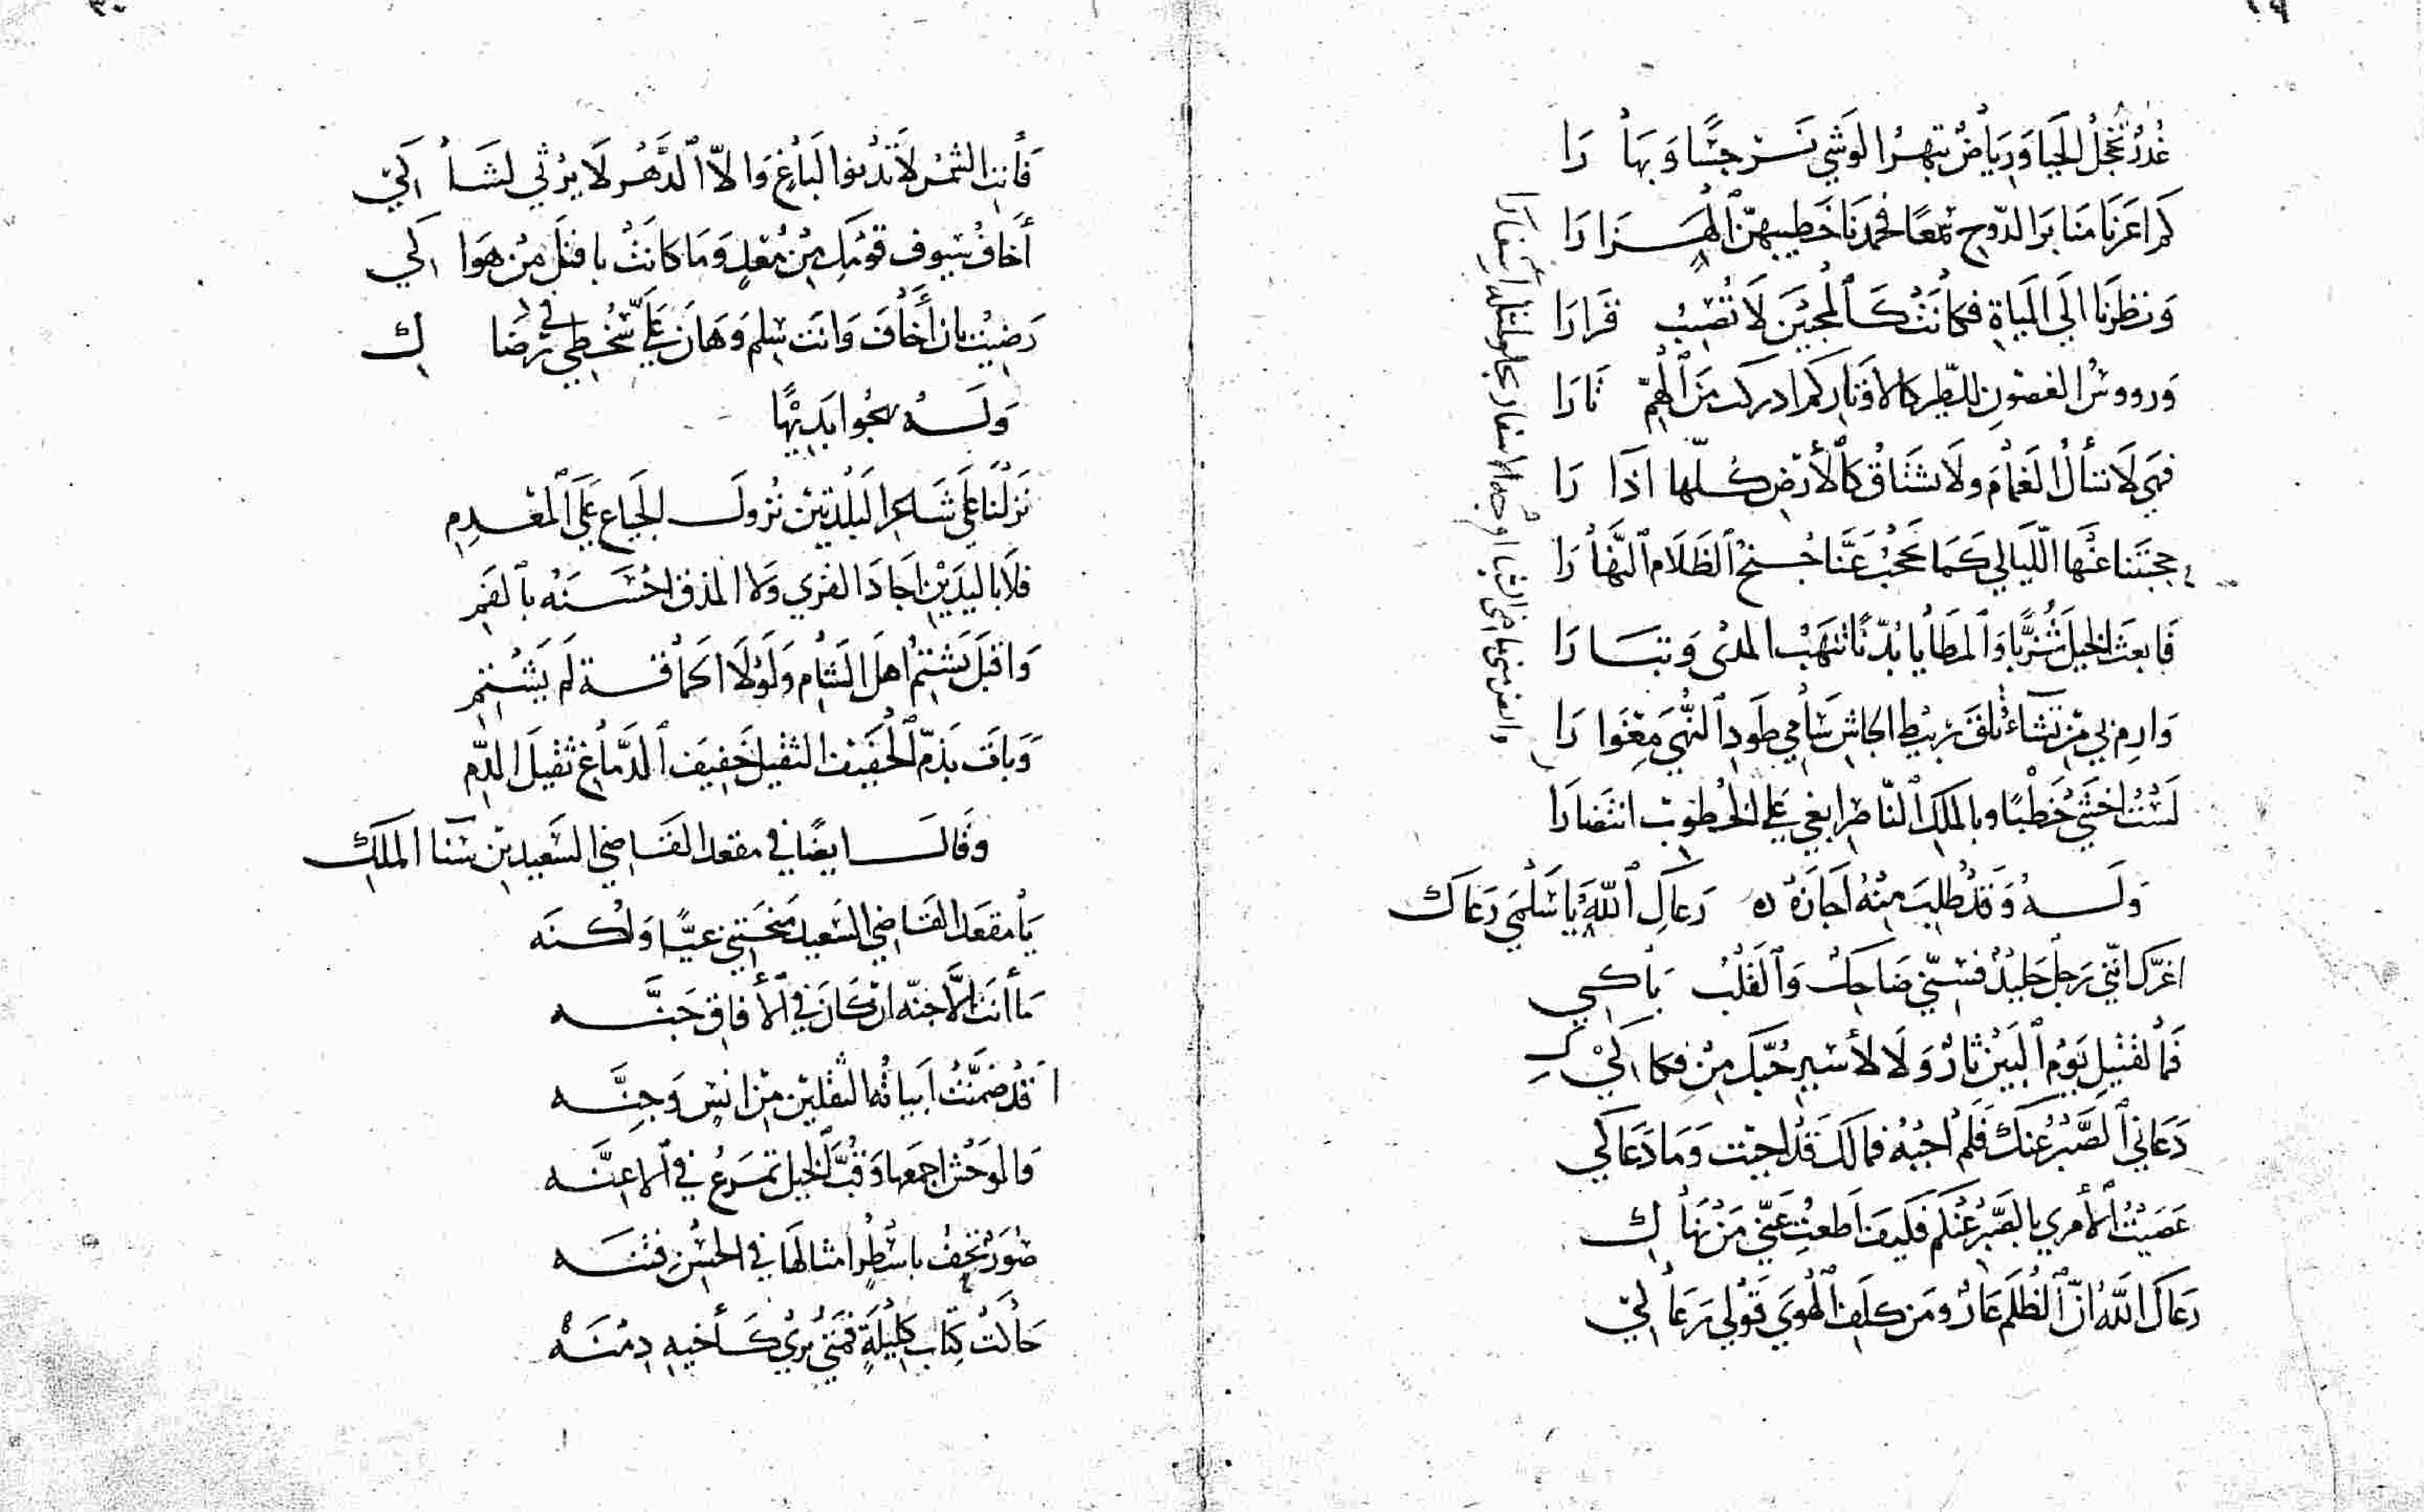 ٢٩
غُدُرٌ تُخْجِلُ الْحَيا وَرِيَاضٌ تبهرُ الوَشْيَ نَرْجِسًا وَبَهَا رَا
كَمْ اعَرْنَا مَنَابرَ الدّوحِ سَمْعًا فحمدنَا خَطيبهنّ الهَزَا رَا
وَنظَرنَا الَى المياهِ فكانَتْ كَالمُحِبّينَ لَا تُصِيبُ قَرارَا
وَرووسُ الغصُونِ للطّير كالاوتارِ كم ادركت مَنَ الهمّ ثَارَا
فهيَ لَا تسألُ الغَمامَ ولَا تشتَاقُ كَالأرْضِ كُلّها اذَا رَا
حجبَتنا عَنْها اللّيَالي كَمَا يحجُبُ عَنَّا جُنحُ الظَلَام النَّهَا رَا
فَابعَث الخيلَ شُزَّبًا وَالمطَايا بُدّنًا تنهَبُ المدى وَتبَا رَا
وَارمِ بي مَن تَشَاء تُلقَ رَبيطَ الجاشِ سَامي طَودِ النُّهَى مِغوَا رَا
لَسْتُ اخشَى خَطْبًا وبالملكِ النّاصِر ابغي عَلى الخُطوب انتصَارَا
وَلَهُ وَقَدْ طُلِبَ مِنْهُ اجَازَةُ ه رَعَاكِ اللّهَ يَا سَلْمَى رَعَاك
اغرّكَ انّني رَجُلٌ جَليدٌ فسِنّي ضَاحِكٌ وَالقَلْبُ بَاكِي
فَمَا لقتيلِ يَوْمِ البَيْنِ ثَارٌ وَلَا لأسيرِ حُبّكَ مِنْ فكاكِ
دَعَاني الصَّبْرُ عنكَ فَلَمْ اجُبْهُ فمالَكَ قَدْ اجبْت وَمَا دَعَاكي
عَصَيْتُ الأمري بالصَّبْرِ عَنْكم فكيفَ اَطعتِ عَنّي مَنْ نَهَاكِ
رَعَاكَ اللَّهُ انّ الظُلمَ عَارٌ ومَن كلَفِ الهَوَى قَولي رَعَاكِ
وانض مني ماضي الشبا اوجه الاسفار يجلو لمثله اسفارا
٣٠
فَأنتِ الشمسُ لَا تدنُو البَاغٍ وَالّا الدَّهْرُ لَا يرْثي لشَاكِي
أخَافُ سُيوف قوْمِكِ مِنْ مُعَدٍ وَمَا كَانَتْ بافتَلَ مِنْ هَوَاكِي
رَضِيتُ بان أخَافَ وَانتَ سِلم وَهَانَ عَليّ سُخْطِي في رضَاك
وَلَهُ يهجُوا بَديهًا
نَزلْنَا عَلى شَاعِر البَلْدَتَيْن نُزولَ الجِيَاع عَلَى المعْدِمِ
فلَا باليَدَيْن اجَادَ القرَى وَلا المذق احْسَنَهُ بالفَمِ
وَاقبَلَ يَشتِمُ اهلَ الشآم وَلَوْلَا الحمَاقة لَم يَشْتِمِ
وَبَاتَ بذَمّ الخَفيْف الثقيل خَفيفَ الدَّمَاغِ ثَقيلَ الدَّمِ
وقَالَ ايضًا في مقعد القَاضي السَّعيد بْن سَنَا المَلكِ
يَا مقعَد القَاضي السَعيد مَنَحْتَني عيًّا وَلُكْنَه
مَا أنتَ الَّا جنّه انْ كَانَ في الأفاقِ جَنَّه
قدْ ضَمَّنَتْ ابياتُه الثقلَيْن مِن انسٍ وَجِنَّه
وَالوَحْشَ اجمعَها وَقُبَّ الخيل تمرَعُ في الاعِنَّه
صُوَرٌ تحفُ باسْطُرٍ امثالهَا في الحُسْنِ فتنَه
حَاكَتْ كِتَابَ كليلَةٍ فمَتى يُرى كَأخيهِ دِمنَهْ